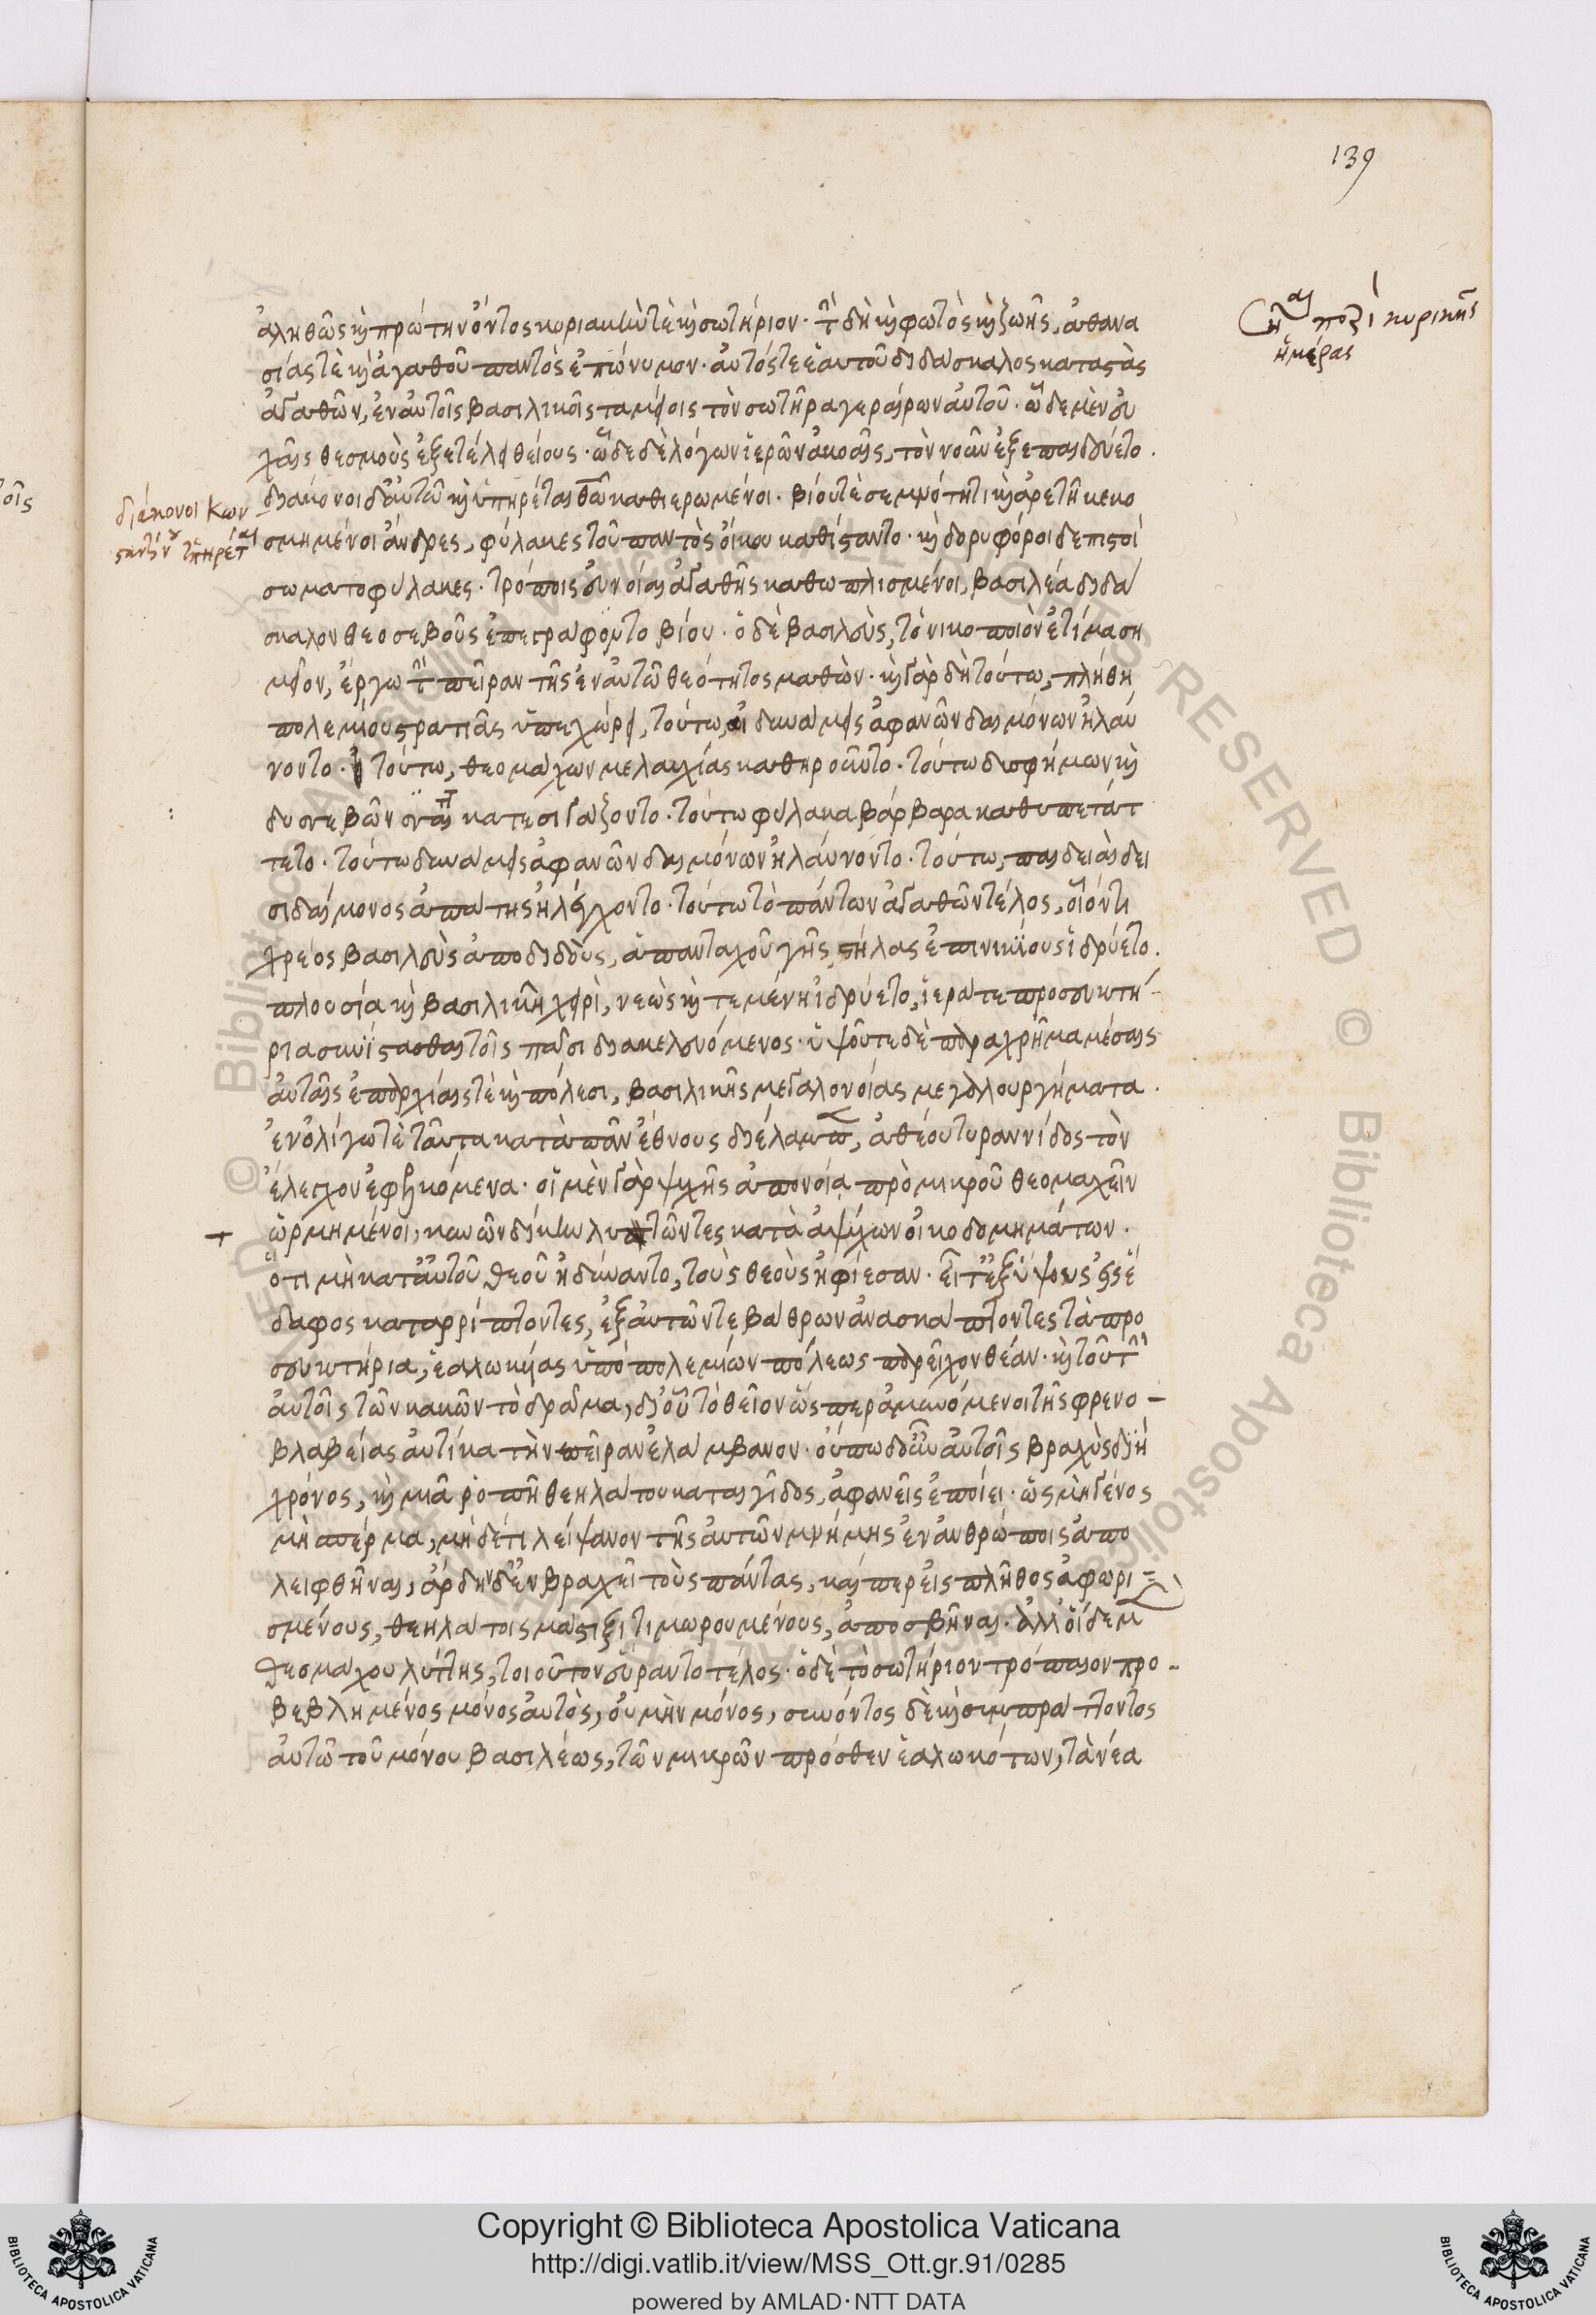 139
ἀληθῶς καὶ πρώτην ὄντος κυριακὴν τὲ καὶ σωτήριον· τὴν δὴ καὶ φωτὸς καὶ ζωῆς, ἀθανα
σίας τὲ καὶ ἀγαθοῦ παντὸς ἐπώνυμον· αὐτός τε ἑαυτοῦ διδάσκαλος καταστὰς
ἀγαθῶν, ἐν αὐτοῖς βασιλικοῖς ταμείοις τὸν σωτῆρα γεραίρων αὐτοῦ· ὧδε μὲν εὐ
χαῖς θεσμοὺς ἐξετέλει θείους· ὧδε δὲ λόγων ἱερῶν ἀκοαῖς, τὸν νοῦν ἐξεπαιδεύετο·
διάκονοι δ' αὐτῶ καὶ ὑπηρέται θεῶ καθιερωμένοι· βίου τὲ σεμνότητι καὶ ἀρετῆ κεκο
σμημένοι ἄνδρες, φύλακες τοῦ παντὸς οἴκου καθίσταντο· καὶ δορυφόροι δὲ πιστοί
σωματοφύλακες· τρόποις εὐνοίας ἀγαθῆς καθωπλισμένοι, βασιλέα διδά
σκαλον θεοσεβοῦς ἐπεγράφοντο βίου· ὁ δὲ βασιλεὺς, τὸ νικοποιὸν ἐτίμα ση
μεῖον, ἔργω τὴν πεῖραν τῆς ἐν αὐτῶ θεότητος μαθών· καὶ γὰρ δὴ τούτω, πλήθη
πολεμίου στρατιᾶς ὑπεχώρει, τούτω, αἱ δυνάμεις ἀφανῶν δαιμόνων ἠλαύ
νοντο· τούτω, θεομάχων μελαυχίας καθηροῦντο· τούτω δυσφήμων καὶ
δυσσεβῶν κατεσιγάζοντο· τούτω φύλακα βάρβαρα καθυπετάτ
τετο· τούτω δυνάμεις ἀφανῶν δαιμόνων ἠλαύνοντο· τούτω, παιδειὰς δει
σιδαίμονος ἀπάτης ἠλέγχοντο· τούτω τὸ πάντων ἀγαθῶν τέλος, οἷόν τι
χρέος βασιλεὺς ἀποδιδοὺς, ἁπανταχοῦ γῆς στήλας ἐπινικίους ἱδρύετο·
πλουσία καὶ βασιλικῆ χειρὶ, νεὼς καὶ τεμένη ἱδρύετο, ἱερά τε προσευκτή-
ρια συνίστασθαι τοῖς πᾶσι διακελευόμενος· ὑψοῦτε δὲ παραχρῆμα μέσαις
αὐταῖς ἐπαρχίαις τὲ καὶ πόλεσι, βασιλικῆς μεγαλονοίας μεγαλουργήματα·
ἐν ὀλίγω τὲ ταῦτα κατὰ πᾶν ἔθνους διέλαμπε, ἀθέου τυραννίδος τὸν
ἔλεγχον ἐφελκόμενα· οἱ μὲν γὰρ ψυχῆς ἀπονοία πρὸ μικροῦ θεομαχεῖν
ὡρμημένοι, κυνῶν δίκην λυττῶντες κατὰ ἀψύχων οἰκοδομημάτων·
ὅτι μὴ κατ' αὐτοῦ θεοῦ ἠδύναντο, τοὺς θεοὺς ἠφίεσαν· εἶτ' ἐξ ὕψους εἰς ἔ
δαφος καταρρίπτοντες, ἐξ αὐτῶν τε βάθρων ἀνασκάπτοντες τὰ προ
σευκτήρια, ἑαλωκυίας ὑπὸ πολεμίων πόλεως παρεῖχον θέαν· καὶ τοῦτ' ἦν
αὐτοῖς τῶν κακῶν τὸ δρᾶμα, δι' οὗ τὸ θεῖον ὥσπερ ἀμυνόμενοι τῆς φρενο-
βλαβείας αὐτίκα τὴν πεῖραν ἐλάμβανον· οὔπω δ' οὖν αὐτοῖς βραχὺς διήει
χρόνος, καὶ μιᾶ ῥοπῆ θεηλάτου καταιγίδος, ἀφανεῖς ἐποίει· ὡς μὴ γένος
μὴ σπέρμα, μηδέ τι λείψανον τῆς αὐτῶν μνήμης ἐν ἀνθρώποις ἀπο
λειφθῆναι, ἄρδην δ' ἐν βραχεῖ τοὺς πάντας, καίπερ εἰς πλῆθος ἀφωρι=
σμένους, θεηλάτοις μάστιξι τιμωρουμένους, ἀποσβῆναι· ἀλλ' οἵδε μὲν
θεομάχου λύττης, τοιοῦτον εὕραντο τέλος· ὁ δὲ τὸ σωτήριον τρόπαιον προ-
βεβλημένος μόνος αὐτὸς, οὐ μὴν μόνος, συνόντος δὲ καὶ συμπράττοντος
αὐτῶ τοῦ μόνου βασιλέως, τῶν μικρῶν πρόσθεν ἑαλωκότων, τὰ νέα
κυριακῆς
ἡμέρας
διάκονοι Κων
σταντίνου ὑπηρέται
Copyright © Biblioteca Apostolica Vaticana
http://digi.vatlib.it/view/MSS_Ott.gr.91/0285
powered by AMLAD·NTT DATA
BIBLIOTECA APOSTOLICA VATICANA
BIBLIOTECA APOSTOLICA VATICANA